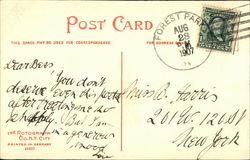 POST CARD
THIS SPACE MAY BE USED FOR CORRESPONDENCE
FOREST PARK
AUG
28
1907
Dear Bess
You don't
deserve even this postal
after treating me so
shabbily. But I am
in a generous
mood
Miss B. Harris
201 W. 121 St
New York
THE ROTOGRAPH
CO., N.Y. CITY
PRINTED IN GERMANY